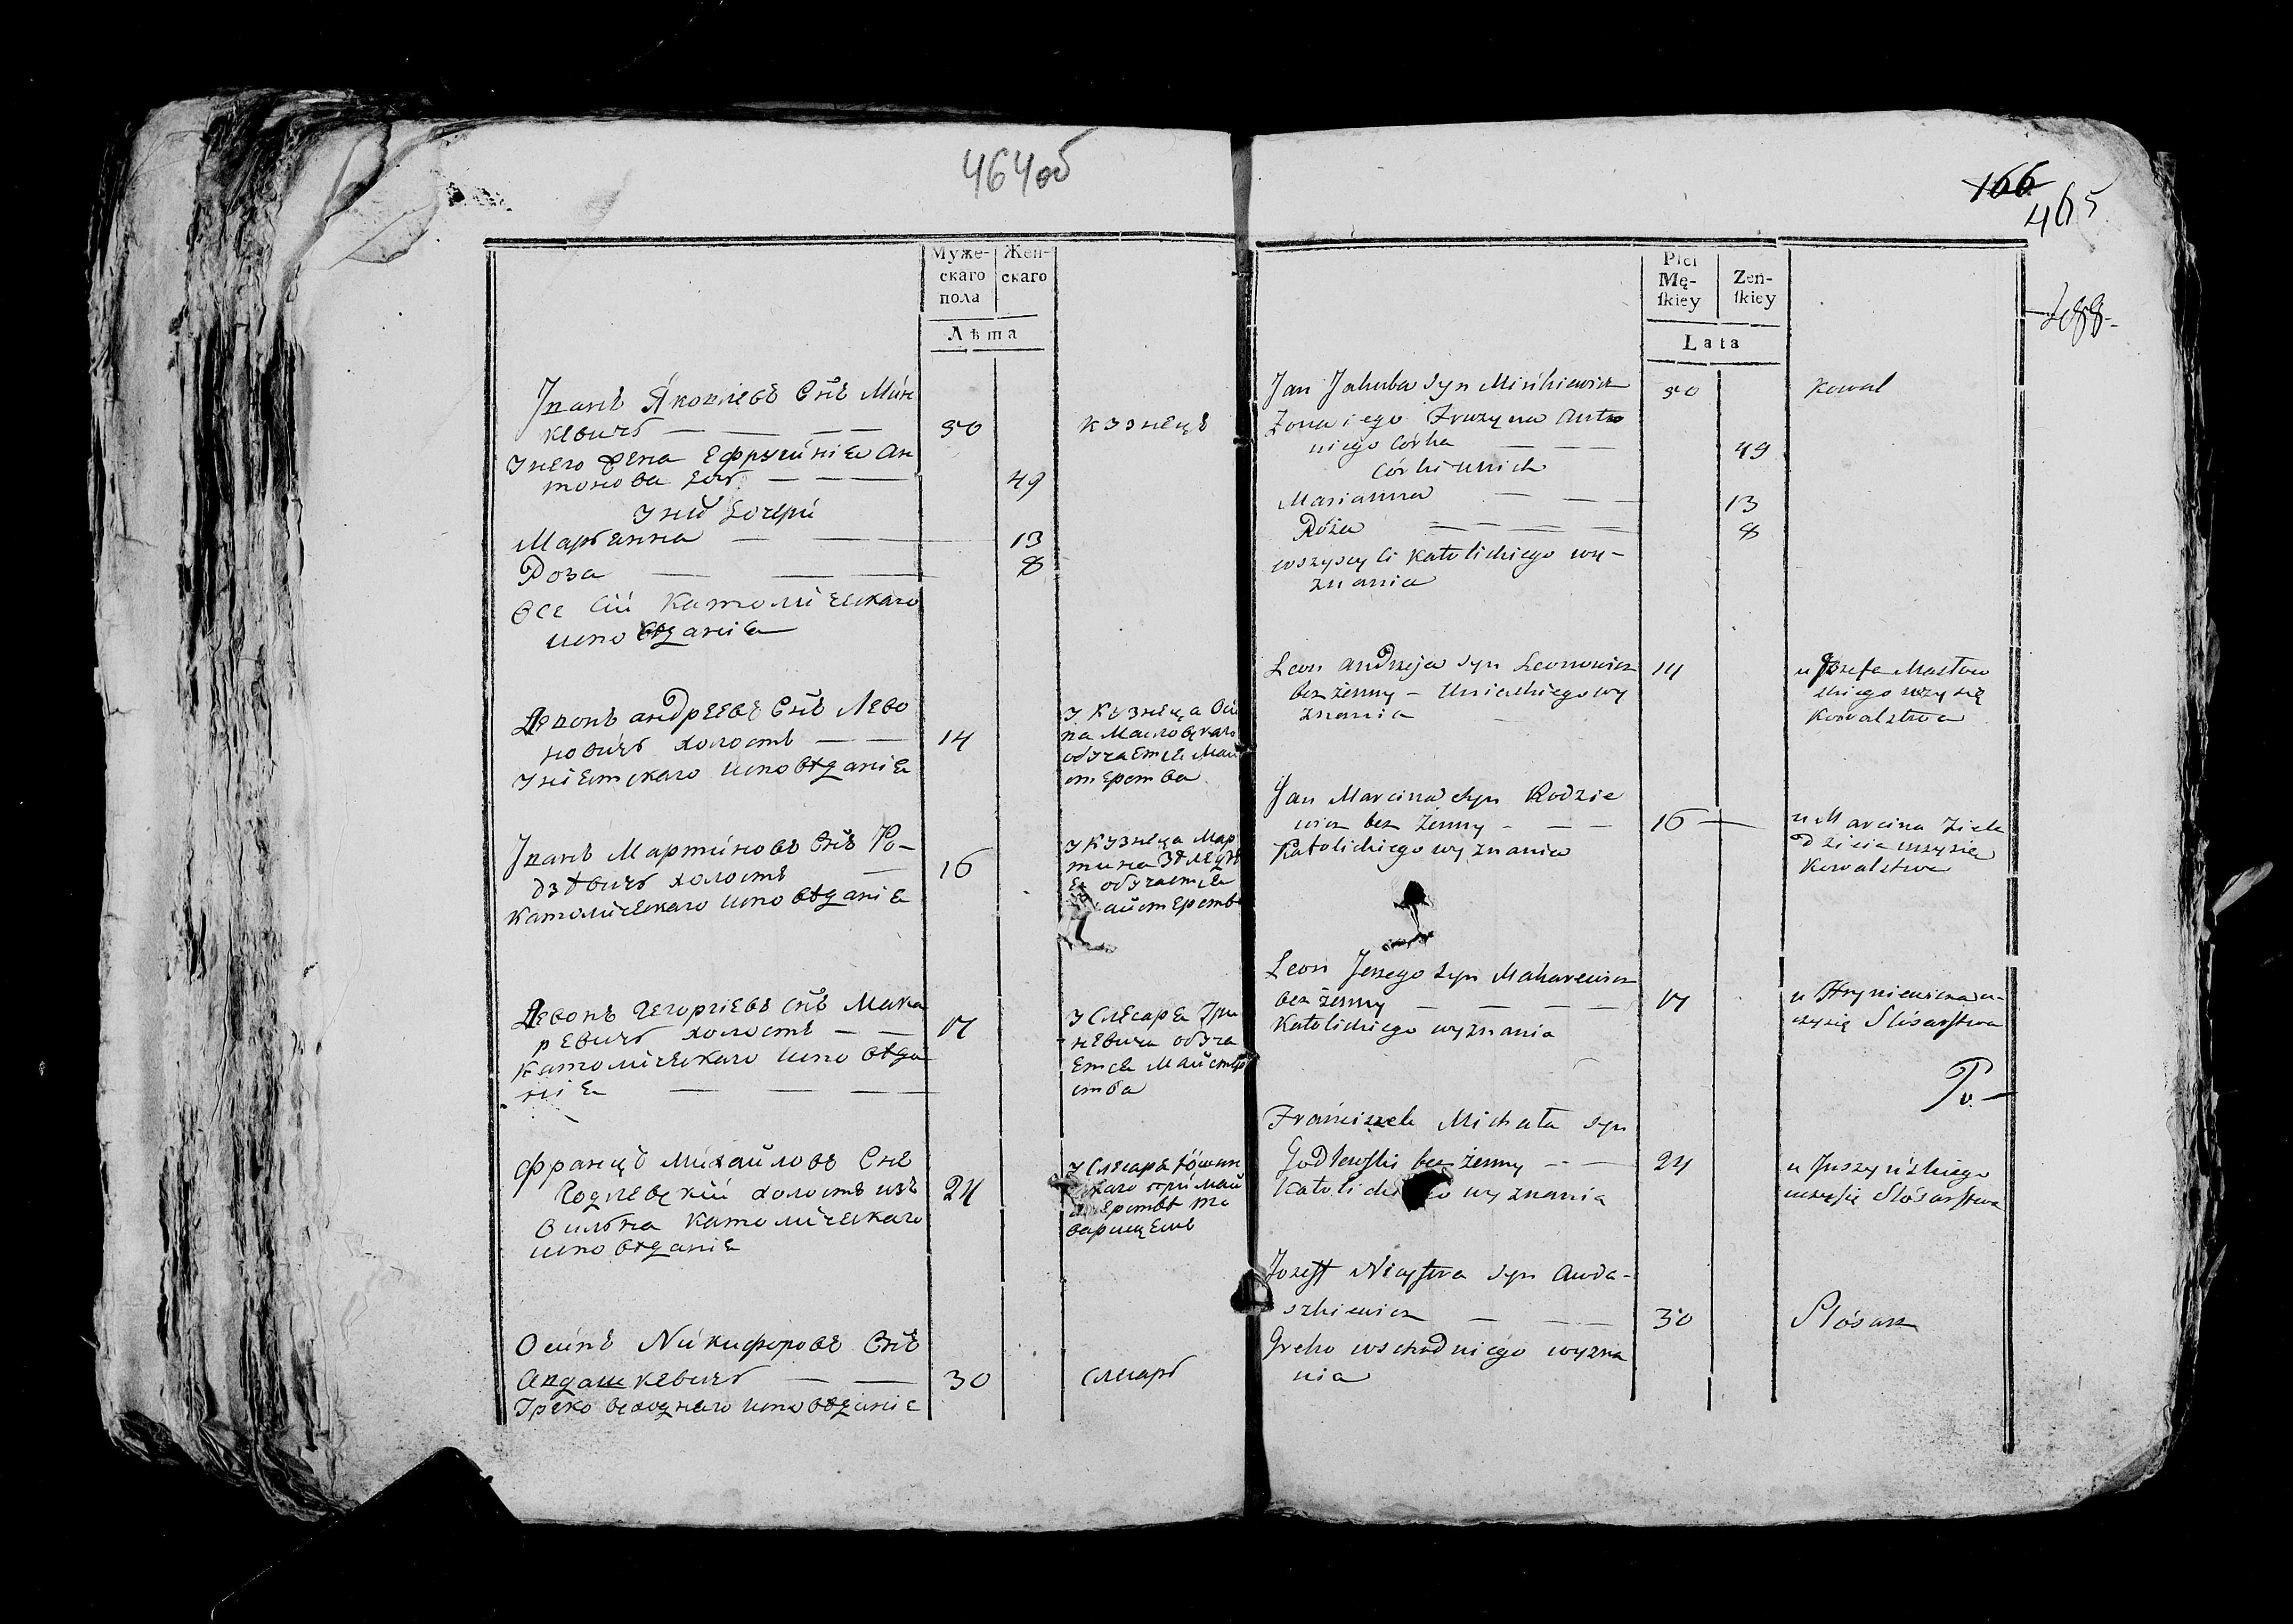 464об
Муже-
скаго
пола
Жен-
скаго
Лѣта
Іванъ Яковлевъ Снъ Мин
кевичъ — — — — 50 кузнецъ
Унего жена Ефрузинiя Ан
тонова дот — — — 49
Уних дочери
Марьянна — — — 13
Роза — — — 8
Все сiи Католическаго
исповѣданiя
Левонъ андреевъ Снъ Лево
новичъ холостъ — — 14
Унiятскаго исповѣданiя
У кузнеца Оси
па Масловскаго
обучается Май
стерства
Іванъ Мартиновъ Снъ Ро-
дзѣвичъ холостъ — 16
Католическаго исповѣданiя
У кузнеца Мар
тина
обучается
айстерств
Левонъ Георгiевъ Снъ Мака
ревичъ холостъ — — 17
Католическаго исповѣда
нiя — — —
У Слесаря Гри
невича обуча
ется Майстер
ства
Францъ Михайловъ Снъ
Годлевскiй холостъ изъ 24
Вильна Католическаго
исповѣданiя
У Слесаря Юшин
скаго при Май
стерствѣ то
варищемъ
Осипъ Никифоровъ Снъ
Авдашкевичъ — — 30 слесарь
Греко всходнаго исповѣданiе
166
465
488
Płci
Mę-
ſkiey
Zeń-
ſkiey
Lata
Jan Jakuba Syn Mińkiewicz 50 Kowal
Zona iego Fruzyna Anto
niego Córka — — 49
Córki unich
Marianna — — — 13
Róża — — — — 8
wszyscy ci Katolickiego wy-
znania
Leon Andrzeja Syn Leonowicz 14
bez żenny — Uniackiego wy
znania
u Jozefa Masłow
skiego uczy się
Kowalstwa
Jan Marcina Syn Rodzie
wicz bez żenny — — 16 —
Katolickiego wyznania
u Marcina Ziele
dzicia uczy sie
Kowalstwa
Leon Jerzego Syn Makarewicz
bez żenny — — — — 17
Katolickiego wyznania
u Hryniewicza u-
czy się Slósarstwa
Franciszek Michała Syn
Godlewski bez żenny — — 24
Katolickiego wyznania
u Juszyńskiego
uczy sie Slósarstwa
Jozeff Nicyfora Syn Awda-
szkiewicz — — — 30 Slósarz
Greko wschodniego wyzna
nia